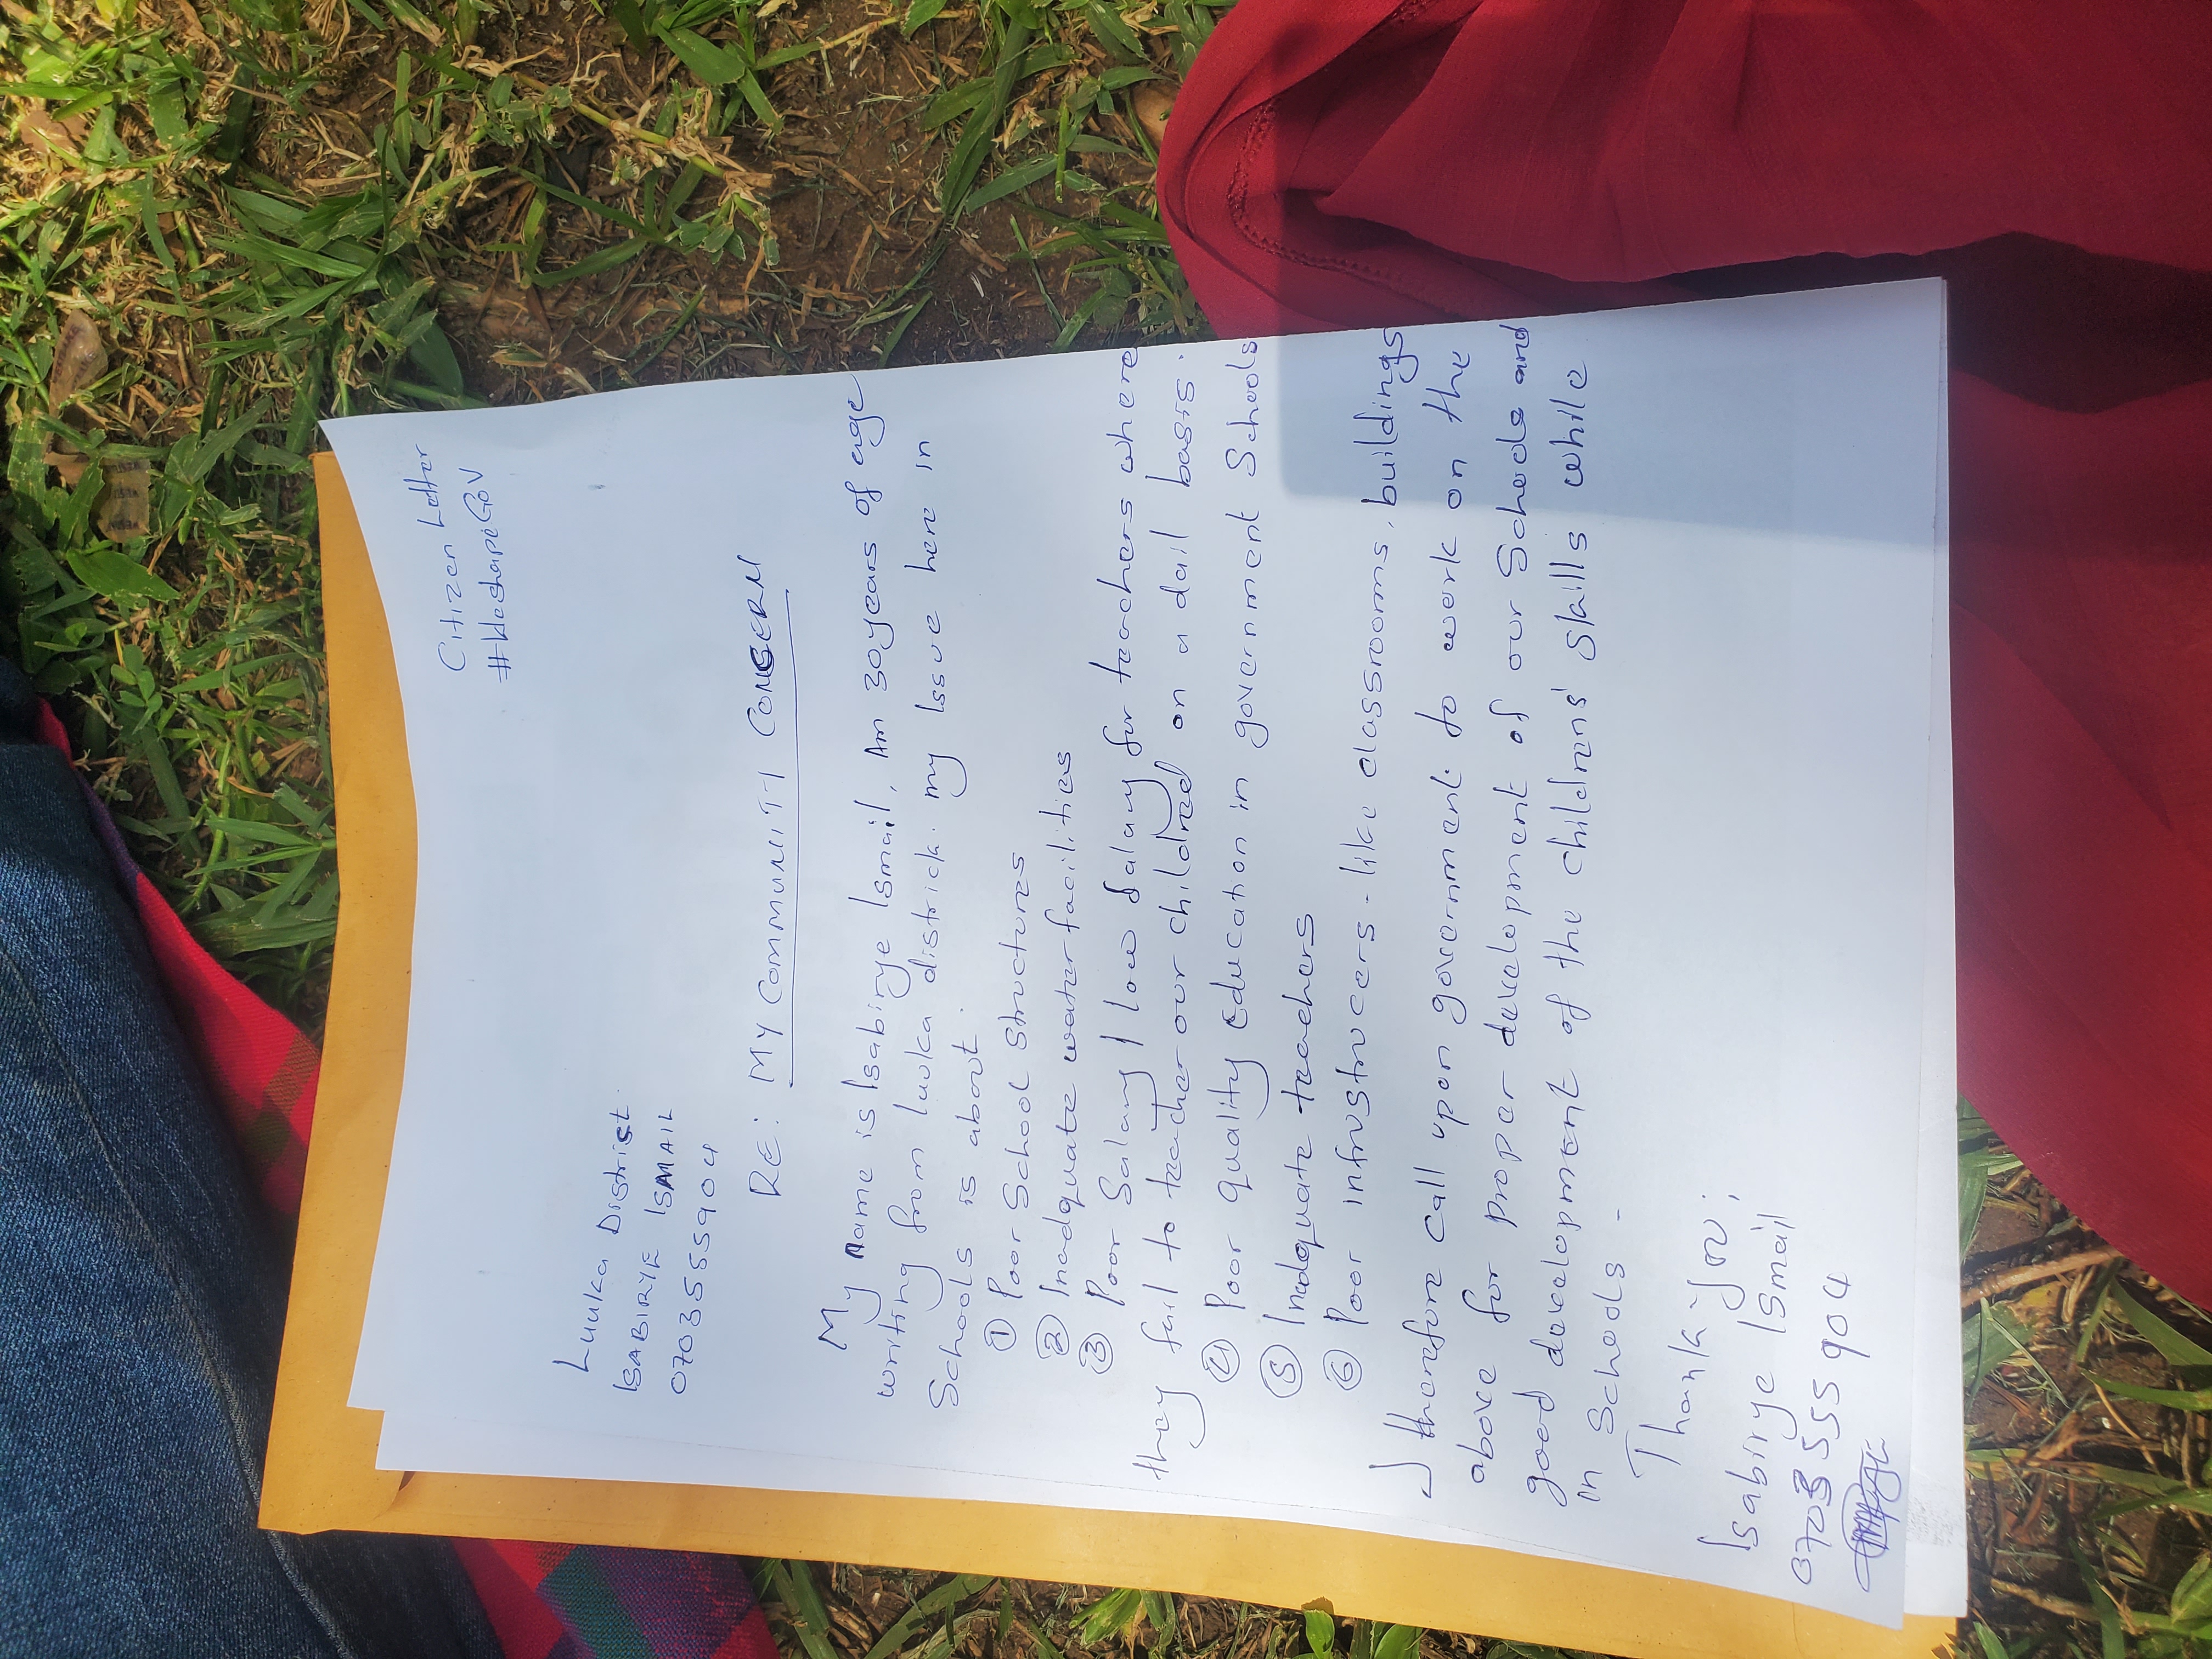 Citizen Letter
#WeshapeGoV
Luuka District
ISABIRYE ISMAIL
0703555904
RE: MY COMMUNITY CONCERN
My name is Isabirye Ismail, Am 30years of age
writing from luuka district. my Issue here in
Schools is about.
① Poor School Structures
② Inadquate water facilities
③ Poor Salary / low Salary for teachers where
they fail to teacher our childred on a dail basis.
④ Poor quality Education in government Schools
⑤ Inadequate teachers
⑥ Poor infrustrucers - like classrooms, buildings
I therefore call upon government to work on the
above for proper development of our Schools and
good development of the childrens' skills while
in Schools -
Thank you;
Isabirye Ismail
0703555904